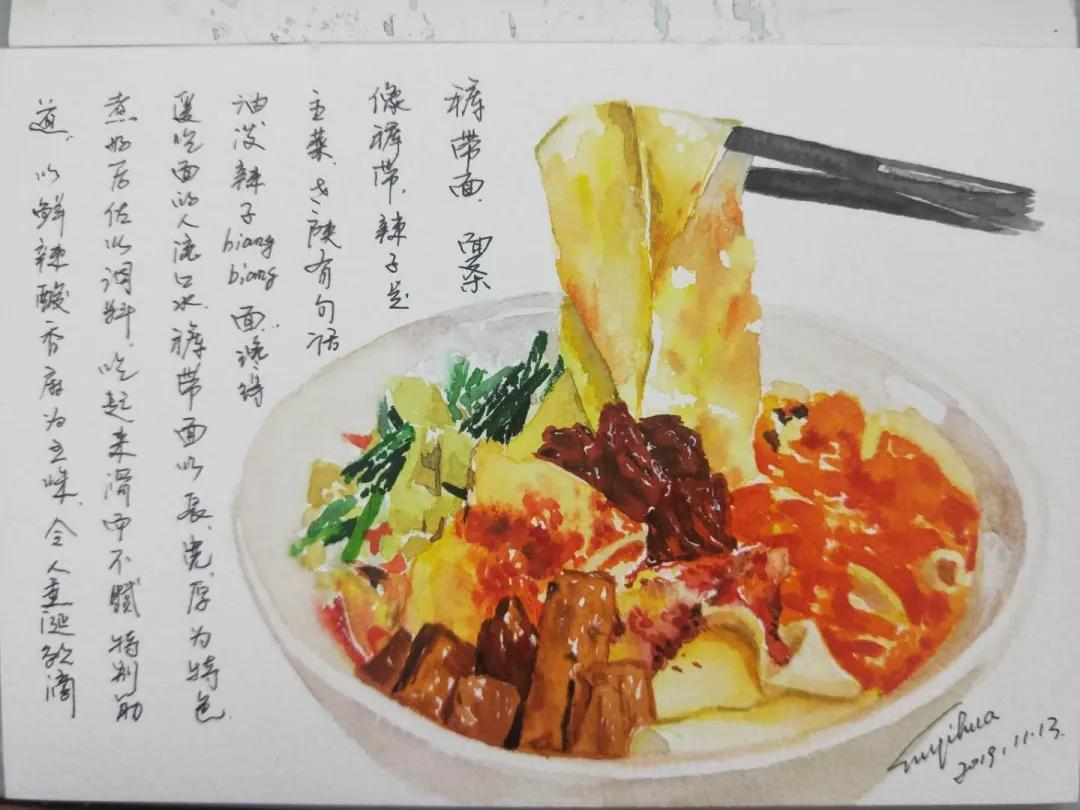 裤带面、面条
像裤带,辣子是
主菜、老陕有句话
油泼辣子biang biang面、馋得
爱吃面的人流口水、裤带面以长、宽、厚为特色.
煮好后佐以调料,吃起来滑而不腻 特别筋
道,以鲜辣酸香麻为五味、令人垂涎欲滴
2019.11.13.